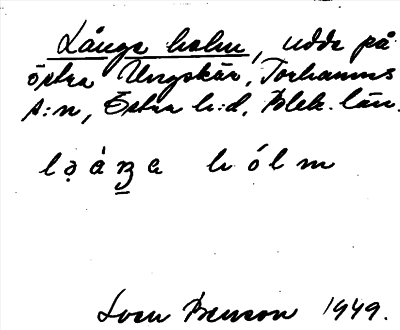 Långe holm, udde på
östra Ungskär, Torhamns
s:n, Östra h:d, Blek. län.
hólm
Sven Benson 1949.